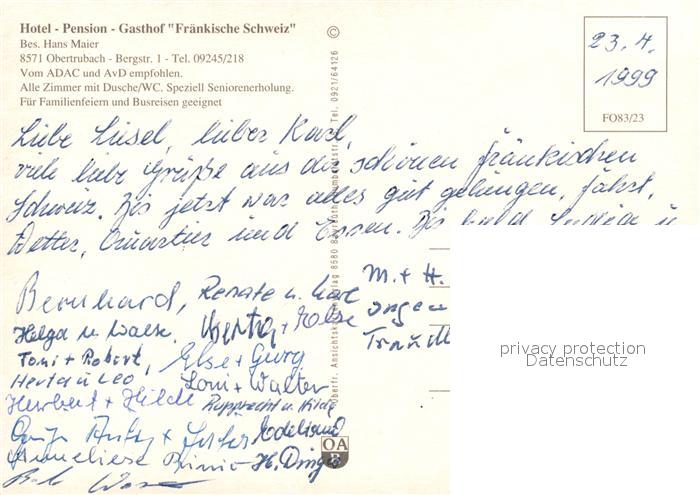 Hotel - Pension - Gasthof "Fränkische Schweiz"
Bes. Hans Maier
8571 Obertrubach - Bergstr. 1 - Tel. 09245/218
Vom ADAC und AvD empfohlen.
Alle Zimmer mit Dusche/WC. Speziell Seniorenerholung.
Für Familienfeiern und Busreisen geeignet
©
Tel. 0921/64126
23.4.
1999
FO83/23
Liebe Liesel, lieber Karl,
viele liebe Grüße aus der schönen fränkischen
Schweiz. Bis jetzt war alles gut gelungen, Fahrt,
Wetter, Quartier und Essen. Bis bald
Bernhard, Renate u. Karl
M. + H.
Helga u. Walter, Hertha +
Traudl
Toni + Robert, Else + Georg
Herta u Leo, Loni + Walter
Herbert + Hilde Rupprecht u. Hilde
Edeltraud
Anneliese
OAB
privacy protection
Datenschutz